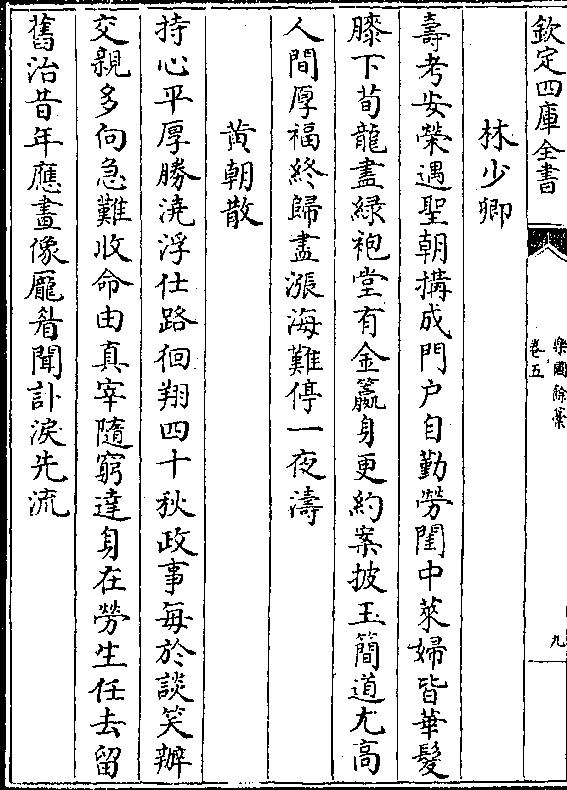 欽定四庫全書
樂圃餘藁
卷五
九
林少卿
壽考安榮遇聖朝搆成門户自勤勞閨中萊婦皆華髮
膝下荀龍盡緑袍堂有金籯身更約案披玉簡道尤高
人間厚福終歸盡漲海難停一夜濤
黄朝散
持心平厚勝澆浮仕路徊翔四十秋政事每於談笑辦
交親多向急難收命由真宰隨窮達身在勞生任去留
舊治昔年應畫像龎眉聞訃淚先流